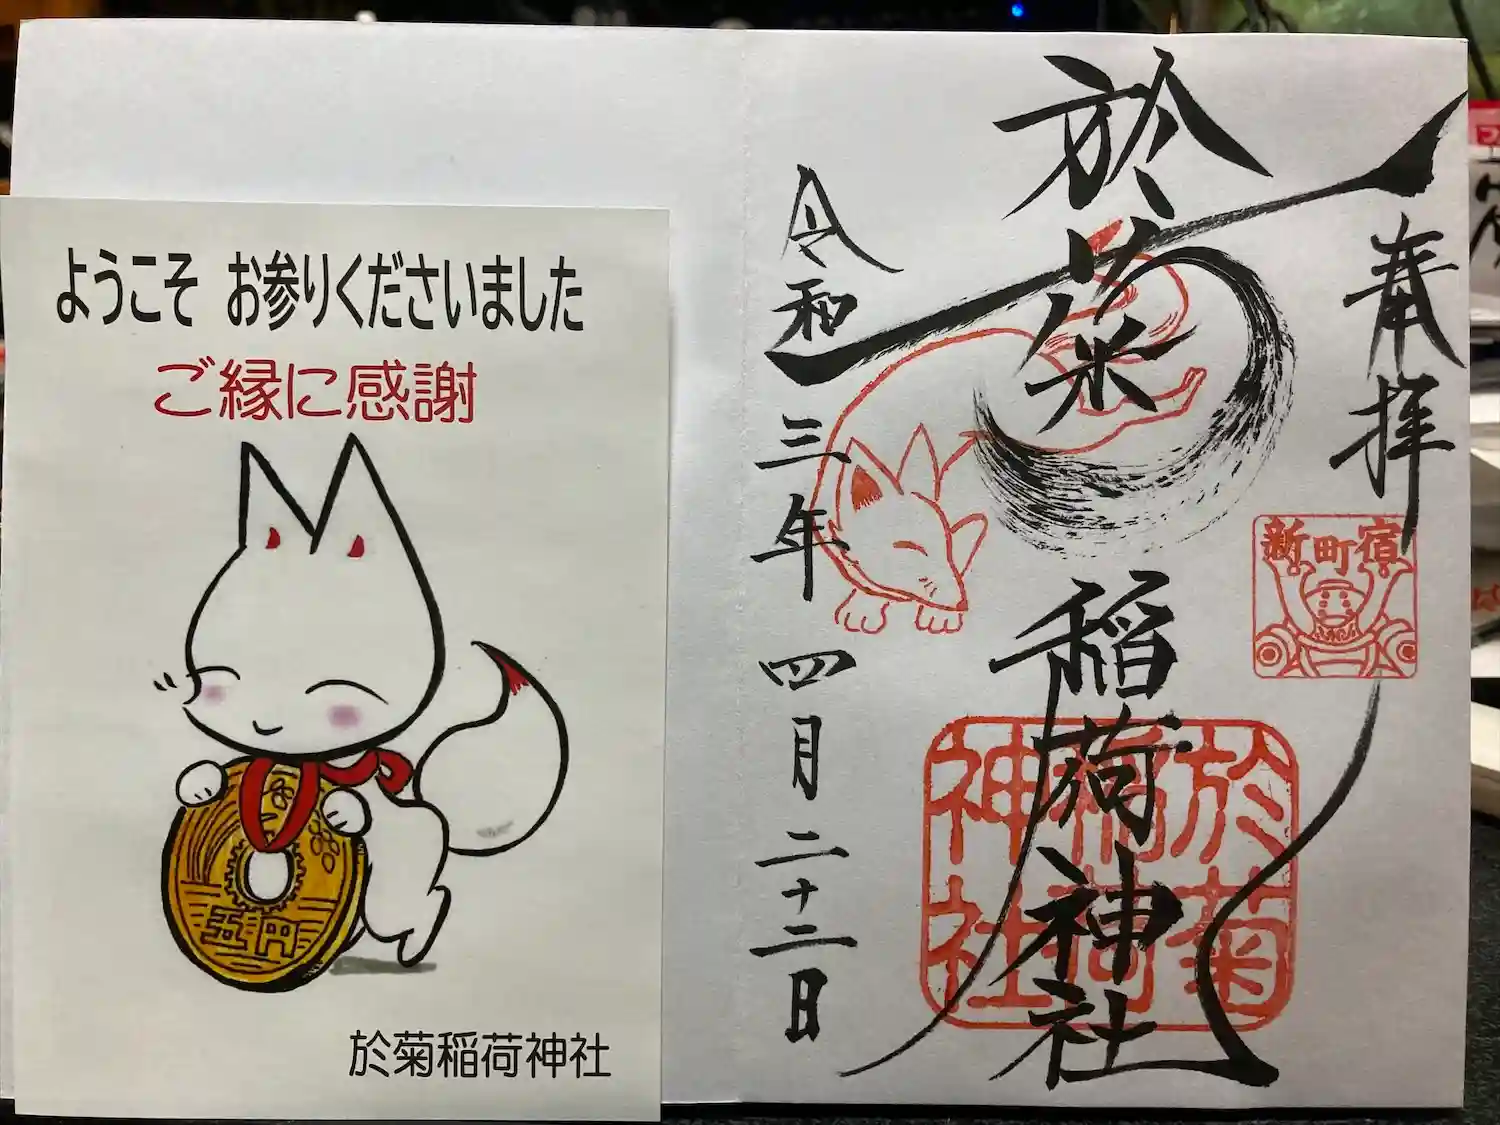 ようこそ お参りくださいました
ご縁に感謝
五円
於菊稲荷神社
奉拝
新町宿
於菊稲荷神社
於菊
稲荷
神社
令和三年四月二十二日